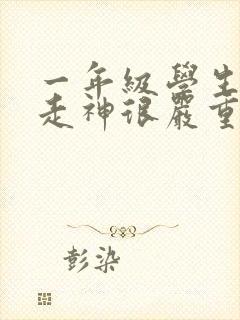 一年級學生
走神很嚴重
彭染